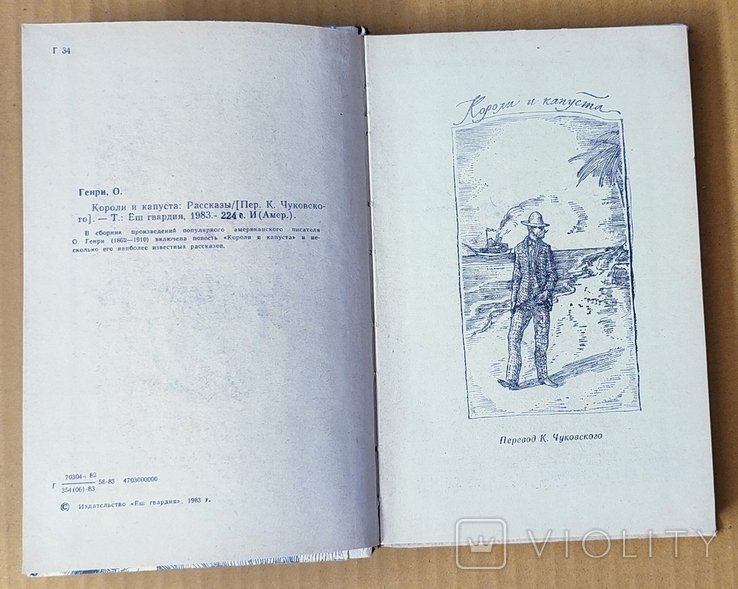 Г 34
Генри, О.
Короли и капуста: Рассказы/[Пер. К. Чуковско-
го]. — Т.: Ёш гвардия, 1983.- 224 с. И (Амер.).
В сборник произведений популярного американского писателя
О. Генри (1862—1910) включена повесть «Короли и капуста» и не-
сколько его наиболее известных рассказов.
Г 70304— 82
354(06)-83 58-83 4703000000
© Издательство «Ёш гвардия», 1983 г.
Короли и капуста
Перевод К. Чуковского
VIOLITY